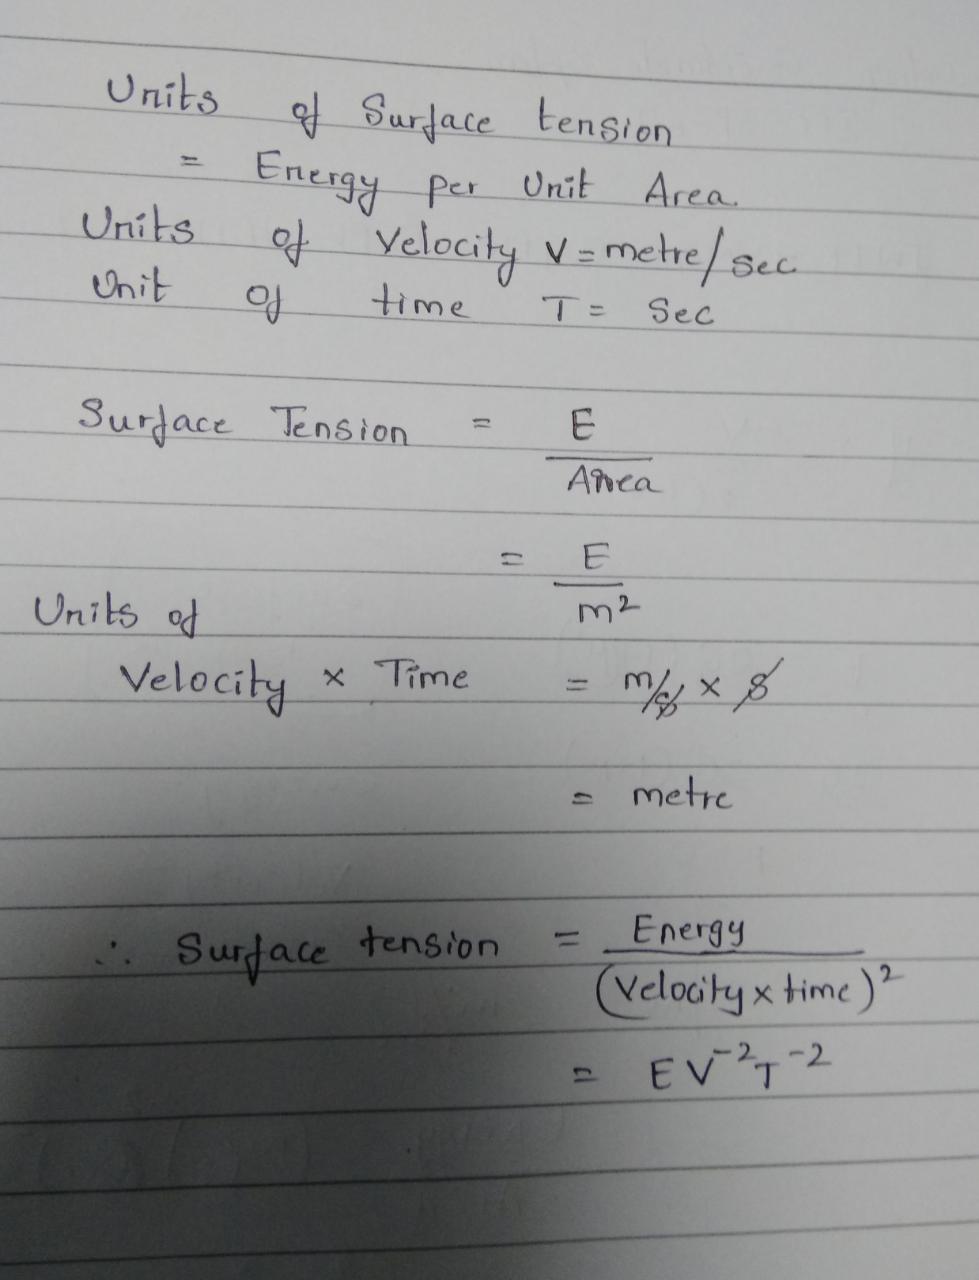 Units of Surface tension
= Energy per Unit Area.
Units of Velocity V = metre/sec
Unit of time T = Sec
Surface Tension = E
Area
= E
m²
Units of
Velocity × Time = m/s × s
= metre
∴ Surface tension = Energy
(Velocity × time)²
= E V⁻² T⁻²